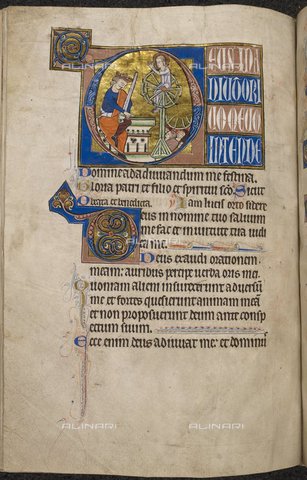 DEUS IN A
DIUTORI
UO MEU
INTENDE
Domine ad adiuuandum me festina.
Gloria patri et filio et spiritui sco. Sicut
Iam lucis orto sidere
Deus in nomine tuo saluum
me fac et in uirtute tua iudi
ca me.
Deus exaudi orationem
meam: auribus percipe uerba oris mei.
Quoniam alieni insurrexerunt aduersu
me et fortes quesierunt animam mea
et non proposuerunt deum ante consp
ectum suum.
Ecce enim deus adiuuat me: et domin
ALINARI
ALINARI
ALINARI
ALINARI